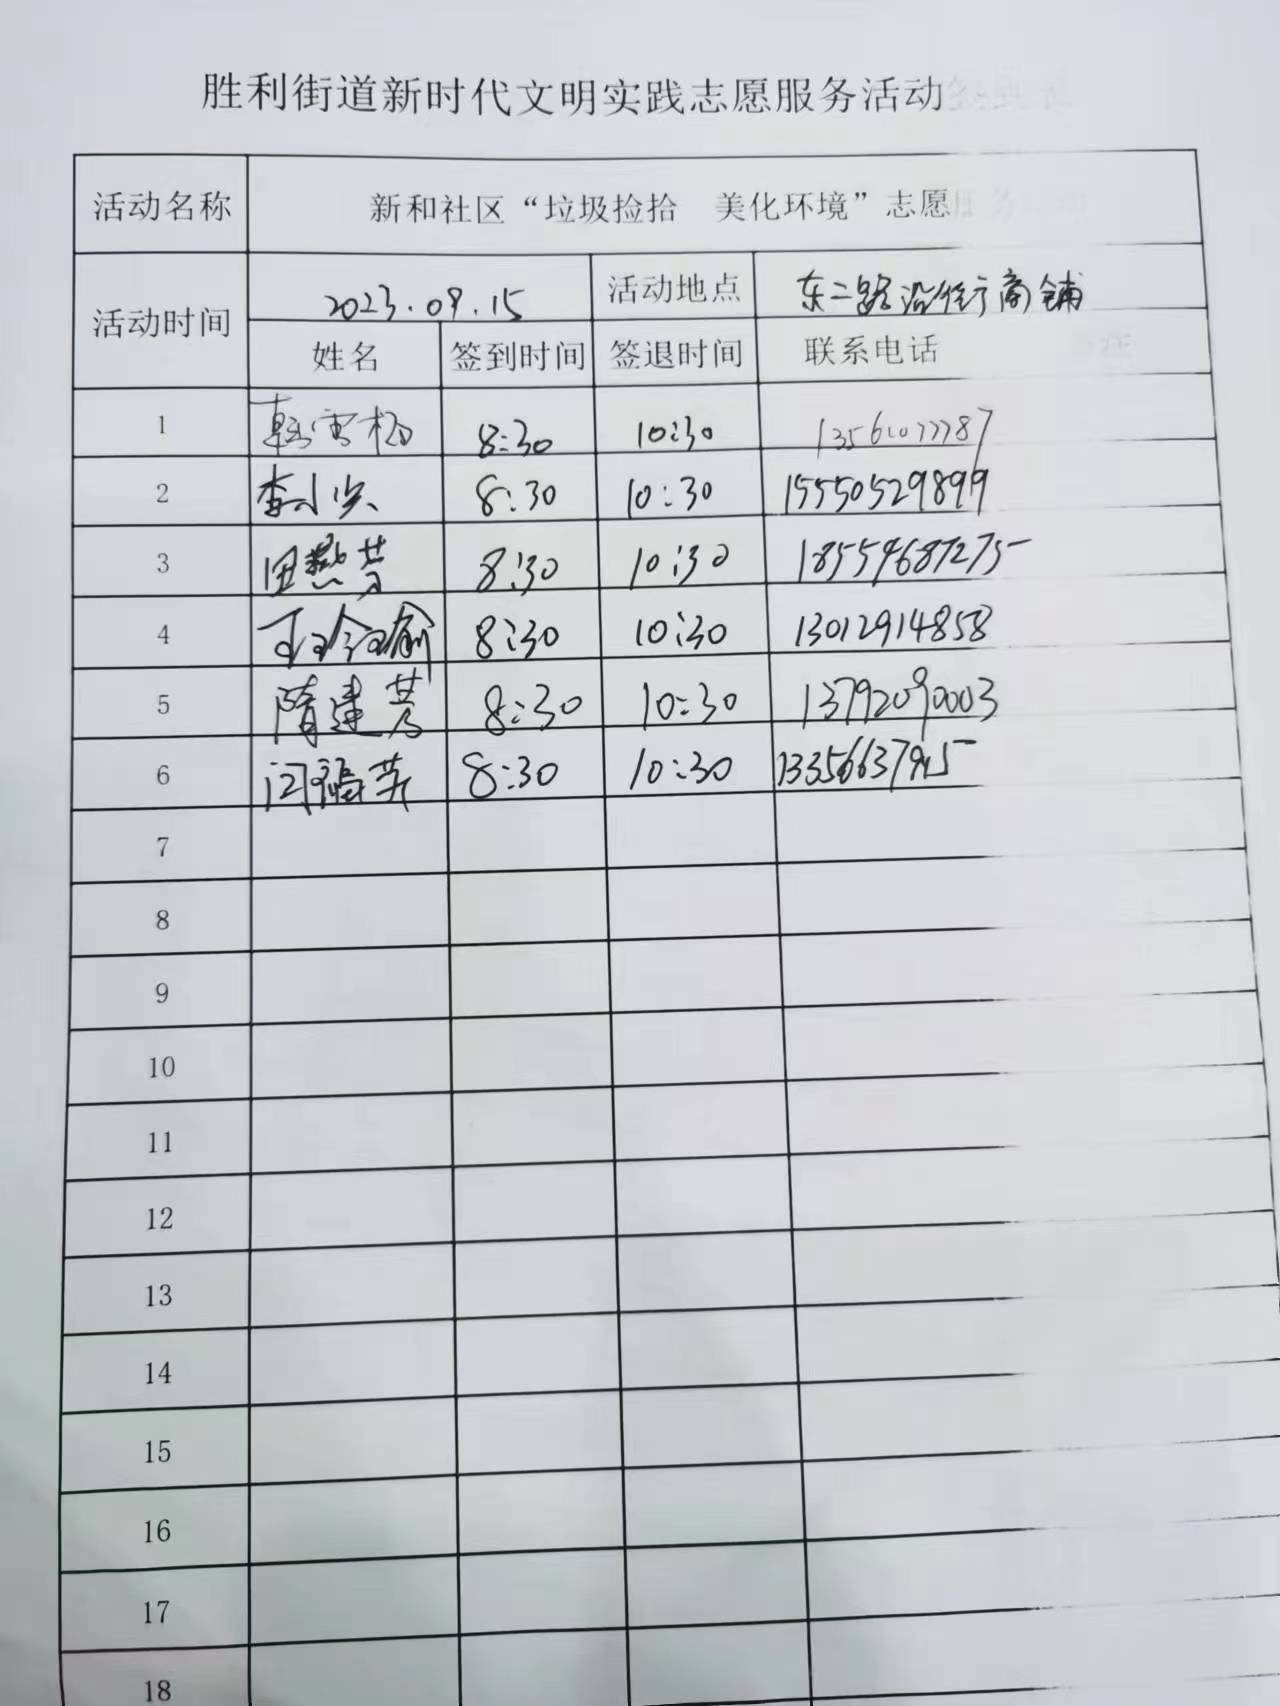 胜利街道新时代文明实践志愿服务活动
活动名称 新和社区“垃圾捡拾 美化环境”志愿
活动时间 2023.09.15 活动地点 东二路沿街商铺
姓名 签到时间 签退时间 联系电话
1 韩雪梅 8:30 10:30
2 8:30 10:30 15550529899
3 田燕芳 8:30 10:30 18554687275
4 8:30 10:30 13012914858
5 隋建芳 8:30 10:30 13792090003
6 闫福英 8:30 10:30
7
8
9
10
11
12
13
14
15
16
17
18